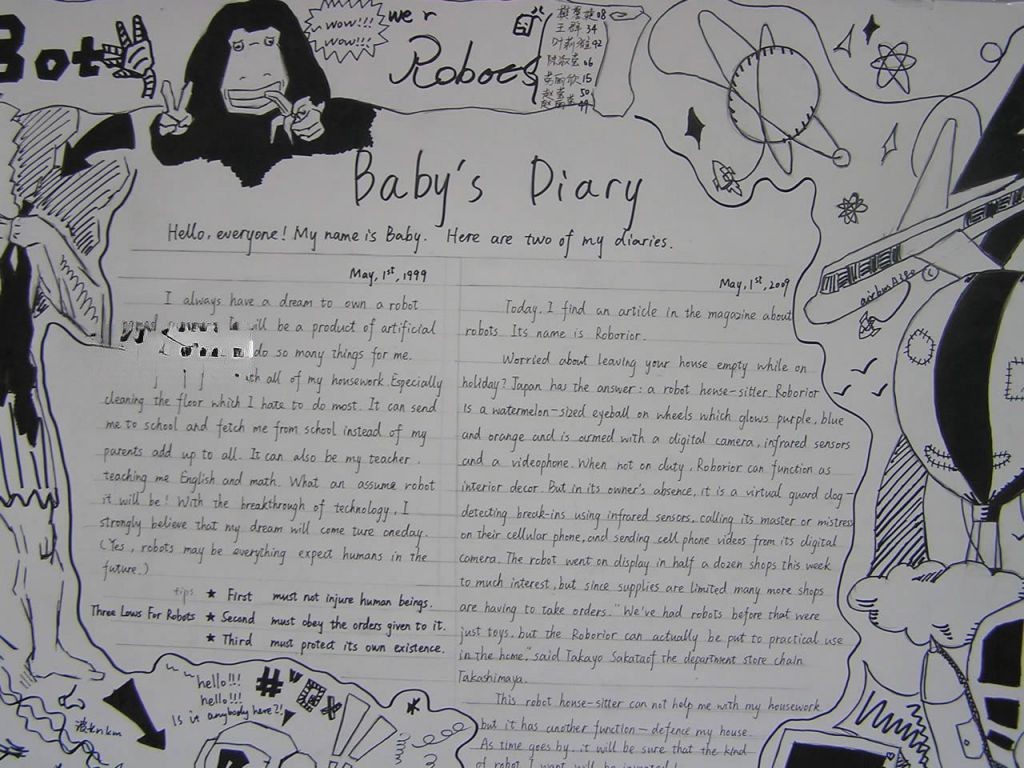 Bot
wow!!!
wow!!!
wow!!!
we r
Robots
王群 34
Baby's Diary
Hello, everyone! My name is Baby. Here are two of my diaries.
May, 1st, 1999
I always have a dream to own a robot
will be a product of artificial
do so many things for me.
all of my housework. Especially
cleaning the floor which I hate to do most. It can send
me to school and fetch me from school instead of my
parents add up to all. It can also be my teacher,
teaching me English and math. What an assume robot
it will be! With the breakthrough of technology, I
strongly believe that my dream will come ture oneday.
(Yes, robots may be everything expect humans in the
future.)
tips
Three Laws For Robots
★ First must not injure human beings.
★ Second must obey the orders given to it.
★ Third must protect its own existence.
May, 1st, 2009
Today, I find an article in the magazine about
robots. Its name is Roborior.
Worried about leaving your house empty while on
holiday? Japan has the answer: a robot house-sitter. Roborior
is a watermelon-sized eyeball on wheels which glows purple, blue
and orange and is armed with a digital camera, infrared sensors
and a videophone. When not on duty, Roborior can function as
interior decor. But in its owner's absence, it is a virtual guard dog-
detecting break-ins using infrared sensors, calling its master or mistress
on their cellular phone, and sending cell phone videos from its digital
camera. The robot went on display in half a dozen shops this week
to much interest, but since supplies are limited many more shops
are having to take orders. "We've had robots before that were
just toys, but the Roborior can actually be put to practical use
in the home," said Takayo Sakataof the department store chain
Takashimaya.
This robot house-sitter can not help me with my housework
but it has another function - defence my house
As time goes by, it will be sure that the kind
of robot I want will be invented!
hello!!!
hello!!!
Is in anybody here?!